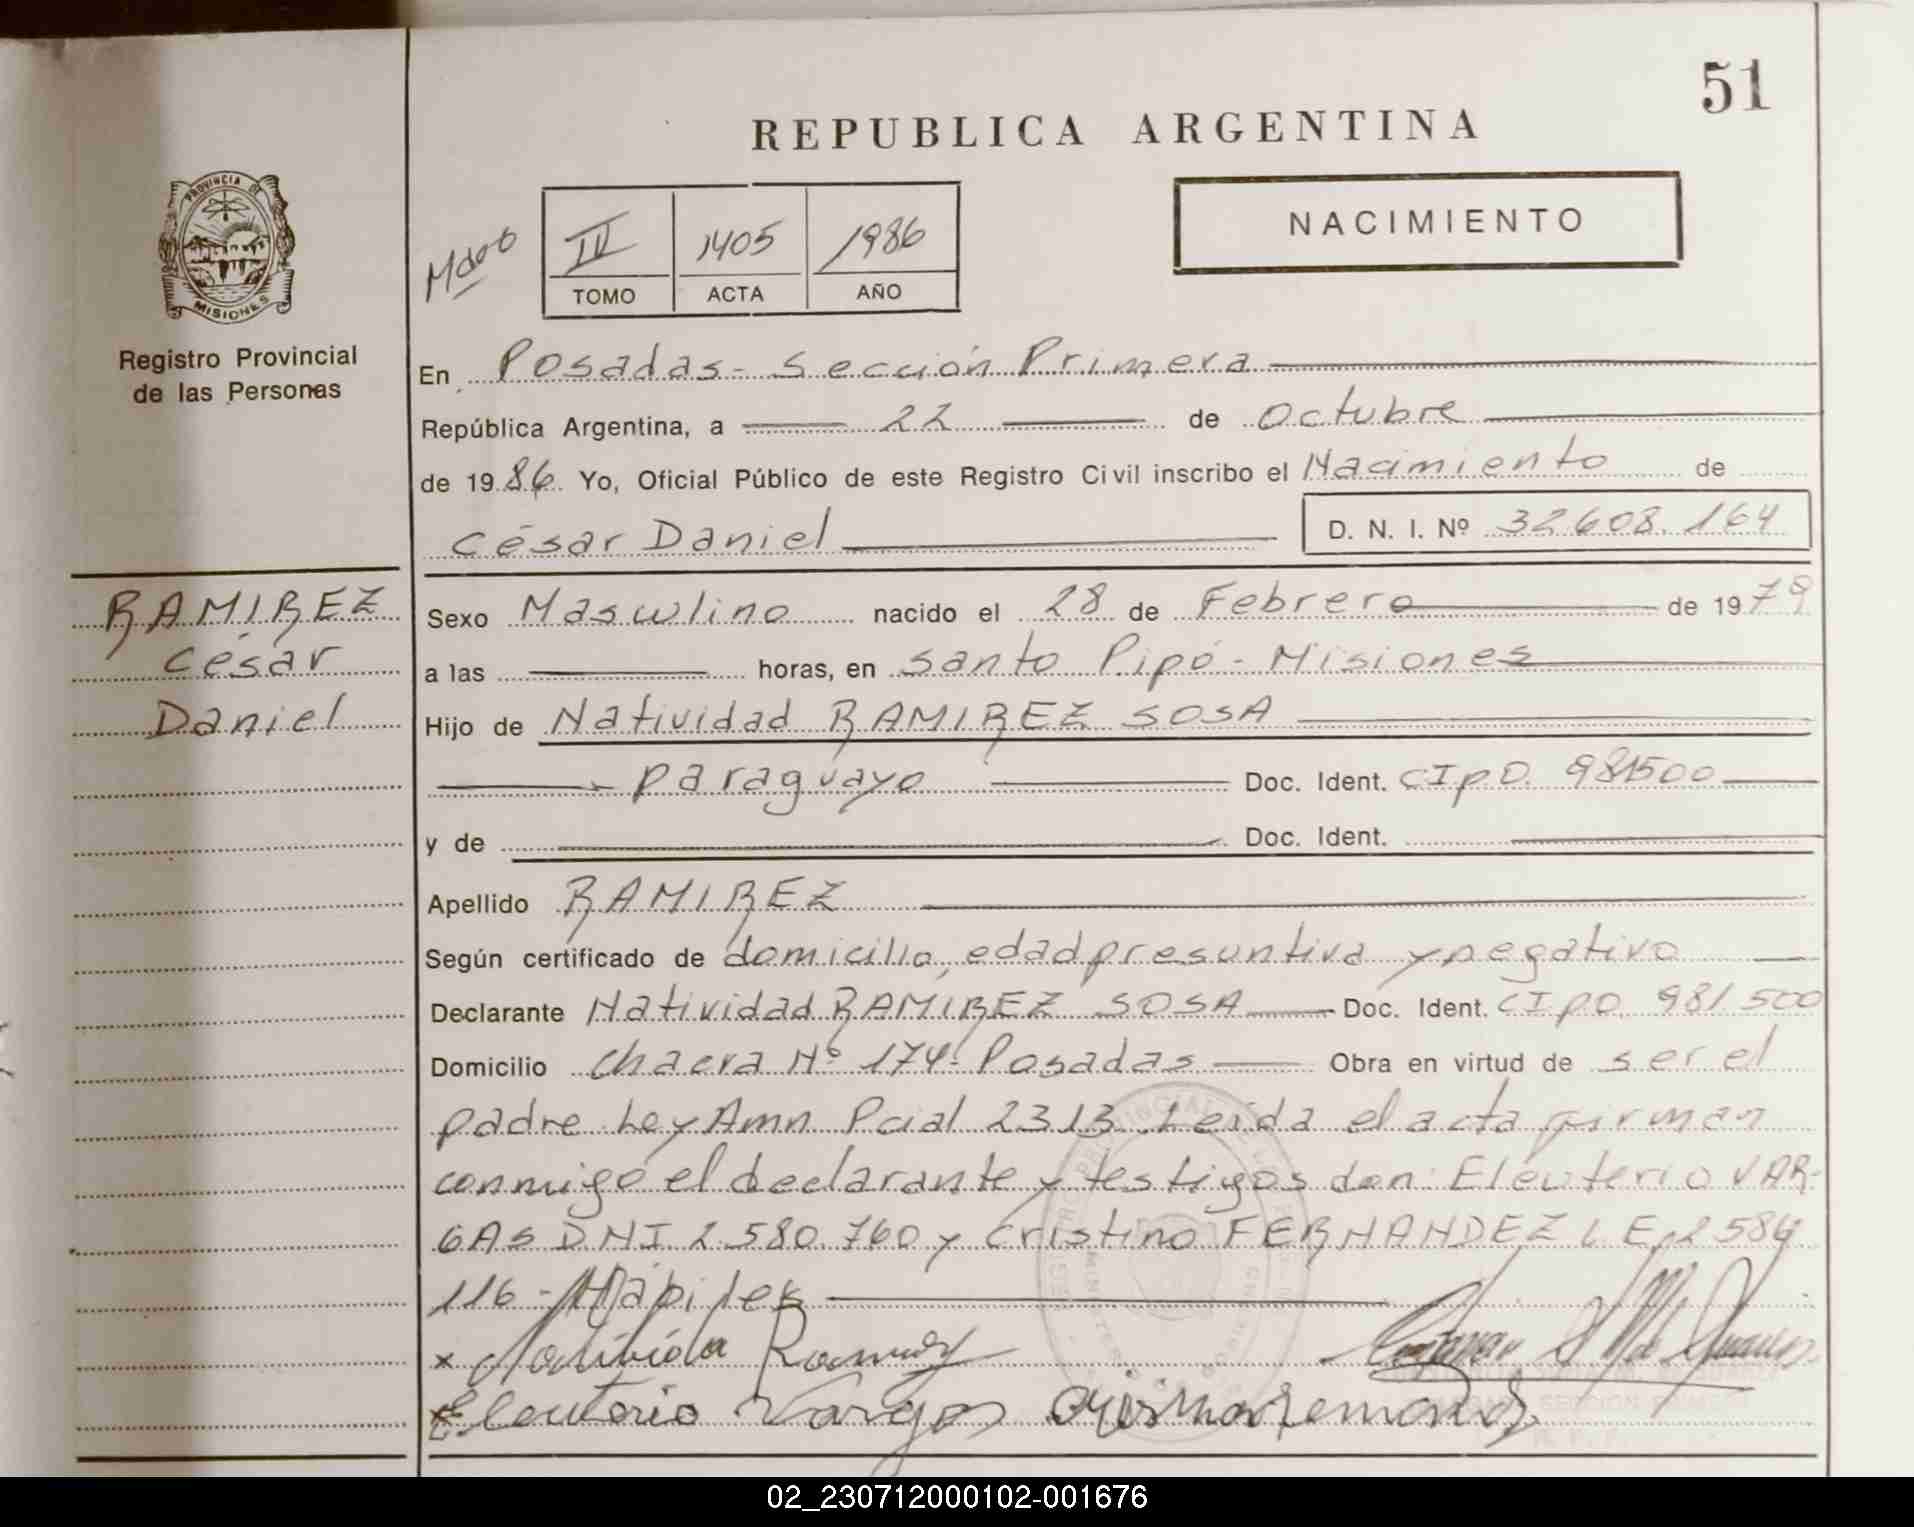 51
REPUBLICA ARGENTINA
PROVINCIA DE
MISIONES
Registro Provincial
de las Personas
III 1405 1986
TOMO ACTA AÑO
NACIMIENTO
En Posadas - Sección Primera
República Argentina, a 22 de Octubre
de 1986 Yo, Oficial Público de este Registro Civil inscribo el Nacimiento de
César Daniel D. N. I. Nº 32.608.164
RAMIREZ
César
Daniel
Sexo Masculino nacido el 28 de Febrero de 1979
a las horas, en Santo Pipó - Misiones
Hijo de Natividad RAMIREZ SOSA
paraguayo Doc. Ident. CIPO. 981500
y de Doc. Ident.
Apellido RAMIREZ
Según certificado de domicilio, edad presuntiva y negativo
Declarante Natividad RAMIREZ SOSA Doc. Ident. CIPO. 981.500
Domicilio Chacra Nº 174- Posadas Obra en virtud de ser el
padre Ley Amn Pcial 2313. Leída el acta firman
conmigo el declarante y testigos don: Eleuterio VAR-
GAS DNI 2.580.760 y Cristino FERNANDEZ L E. 2584
116-
x Ramirez
Eleuterio Vargas
02_230712000102-001676